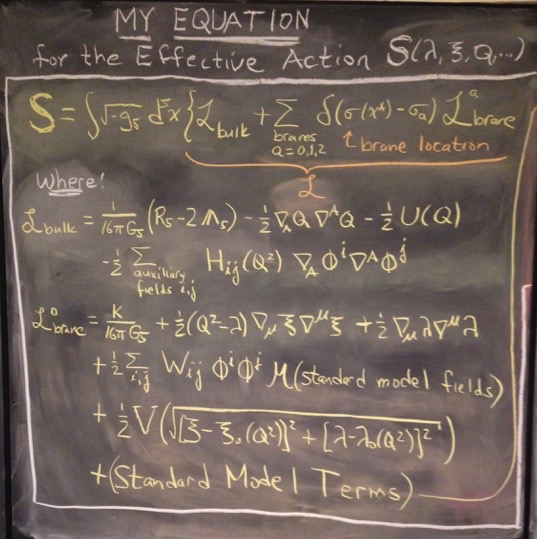 MY EQUATION
for the Effective Action S(λ, ξ, Q, ...)
S = ∫√-g₅ d⁵x { ℒ_bulk + Σ δ(σ(xᴬ) - σₐ) ℒᵃ_brane
branes
a = 0,1,2
↑ brane location
ℒ
Where:
ℒ_bulk = 1/16πG₅ (R₅ - 2Λ₅) - ½ ∇_A Q ∇ᴬ Q - ½ U(Q)
- ½ Σ H_ij(Q²) ∇_A Φⁱ ∇ᴬ Φʲ
auxiliary
fields i,j
ℒ⁰_brane = K/16πG₅ + ½(Q² - λ) ∇_μ ξ ∇^μ ξ + ½ ∇_μ λ ∇^μ λ
+ ½ Σ_i,j W_ij Φⁱ Φʲ M(standard model fields)
+ ½ V(√[ξ - ξ₀(Q²)]² + [λ - λ₀(Q²)]²)
+ (Standard Model Terms)